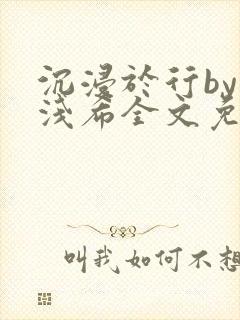 沉浸於行by
浅希全文免
叫我如何不想